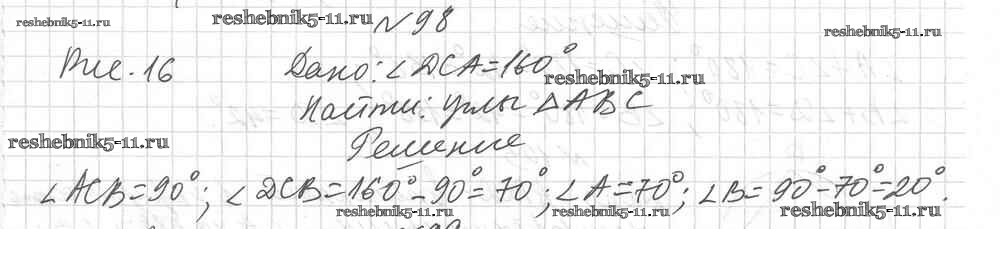 reshebnik5-11.ru
reshebnik5-11.ru
№ 98
reshebnik5-11.ru
Рис. 16 Дано: ∠DCA = 160°
reshebnik5-11.ru
Найти: углы △ABC
reshebnik5-11.ru
Решение
∠ACB = 90°; ∠DCB = 160° - 90° = 70°; ∠A = 70°; ∠B = 90° - 70° = 20°.
reshebnik5-11.ru reshebnik5-11.ru reshebnik5-11.ru